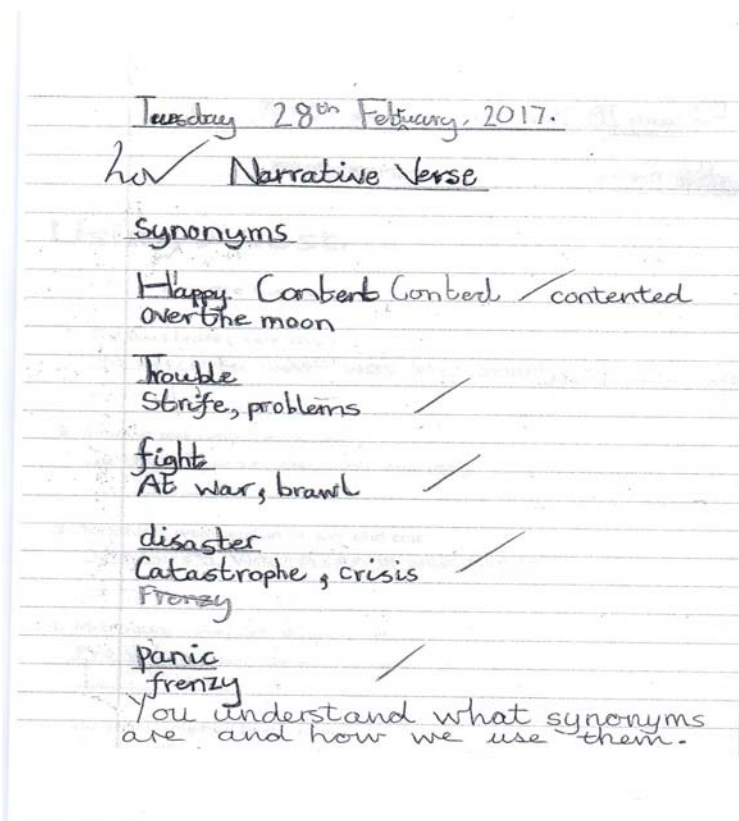 Tuesday 28th February, 2017.
Narrative Verse
Synonyms
Happy. Content Content / contented
over the moon
Trouble
Strife, problems
fight
At war, brawl
disaster
Catastrophe, crisis
Frenzy
panic
frenzy
You understand what synonyms
are and how we use them.